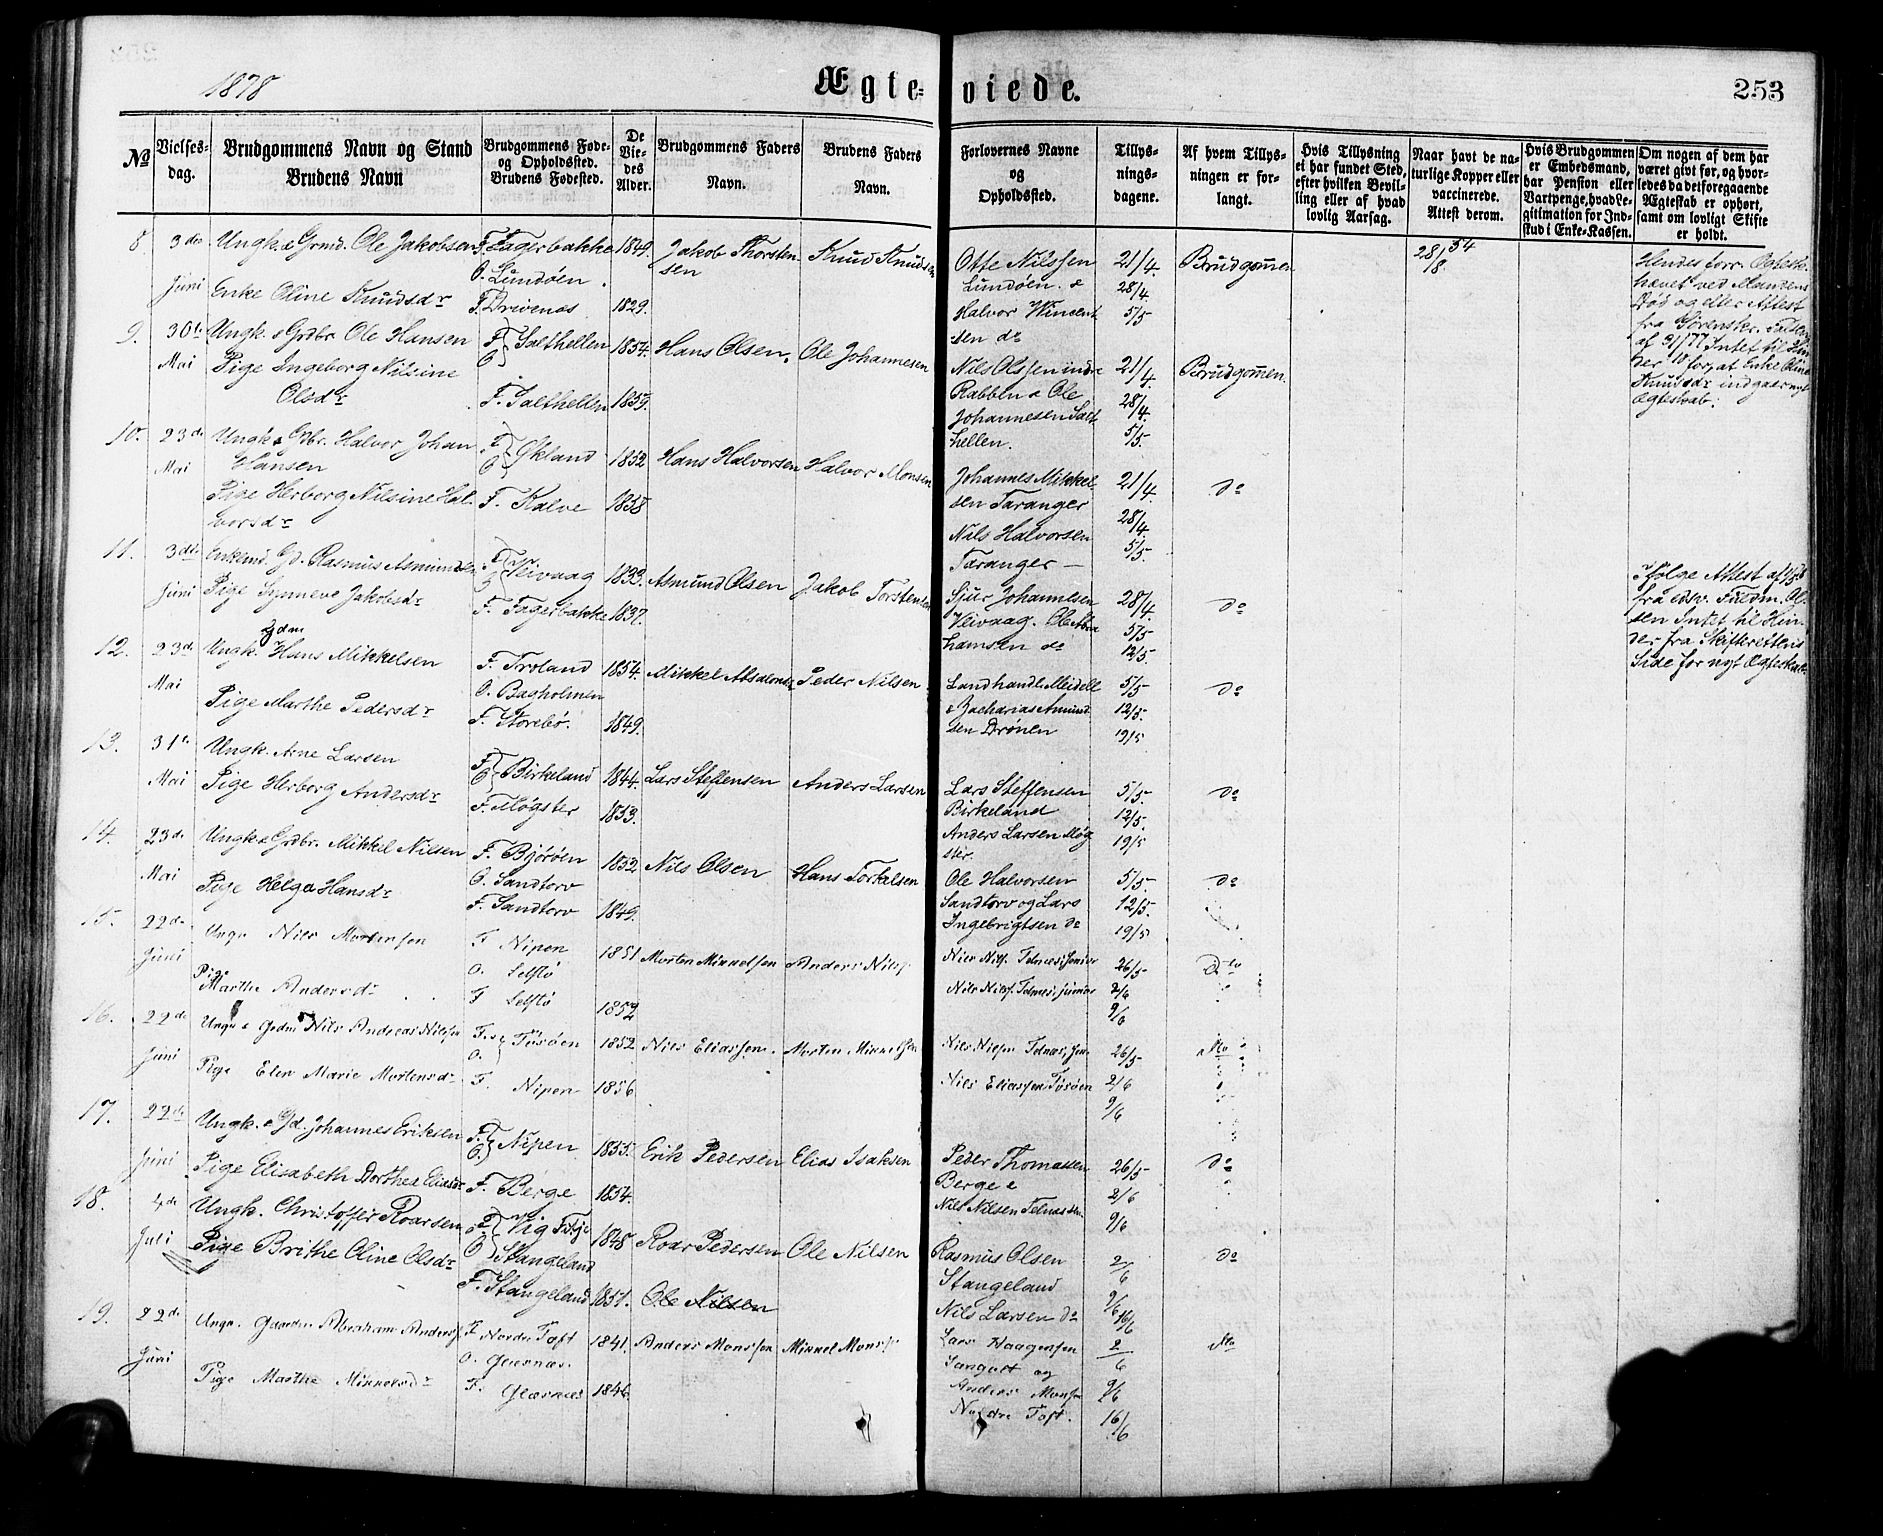 1878
Ægte-
viede.
253
No
Vielses-
dag.
Brudgommens Navn og Stand
Brudens Navn
Brudgommens Føde-
og Opholdssted.
Brudens Fødested.
De
Vie-
des
Alder.
Brudgommens Faders
Navn.
Brudens Faders
Navn.
Forlovernes Navne
og
Opholdssted.
Tillys-
nings-
dagene.
Af hvem Tillys-
ningen er for-
langt.
Hvis Tillysning
ei har fundet Sted,
efter hvilken Bevil-
ling eller af hvad
lovlig Aarsag.
Naar havt de na-
turlige Kopper eller
vaccinerede.
Attest derom.
Hvis Brudgommen
er Embedsmand,
har Pension eller
Vartpenge, hvad Le-
gitimation for Ind-
skud i Enke-Kassen.
Om nogen af dem har
været givt før, og hvor-
ledes da det foregaaende
Ægteskab er ophørt,
samt om lovligt Skifte
er holdt.
8
3die
Juni
Ungk. & Grmd. Ole Jakobsen
Enke Oline Knudsdr
F. Fagerbakke
O. Lundøen.
F. Drivenæs
1849.
1829.
Jakob Thorsten-
sen
Knud Knudsen
Otte Nilssen
Lundøen. &
Halvor Wincent
sen do
21/4.
28/4
5/5
Brudgommen
28/8 54
Hendes forr. Ægtesk.
hævet ved Mandens
Død og efter Attest
fra Sorenskr.
Knudsdr indgaar nyt
Ægteskab.
9.
30te
Mai
Ungk. & Grdbr. Ole Hansen
Pige Ingeborg Nilsine
Olsdr
F. O. Salthellen
F. Salthellen
1854.
1859.
Hans Olsen.
Ole Johannesen
Nils Olssen indre
Rabben & Ole
Johannesen Salt
hellen.
21/4.
28/4.
5/5.
Brudgommen.
10.
23de
Mai
Ungk & Grbr. Halvor Johan
Hansen
Pige Herborg Nilsine Hal
vorsdr
F. O. Økland
F. Kalve
1852
1858
Hans Halvorsen
Halvor Monsen
Johannes Mikkel-
sen Taranger
Nils Halvorsen
Taranger —
21/4.
28/4.
5/5.
do
11.
3die
Juni
Enkemd. Gd. Rasmus Asmundsen
Pige Synneve Jakobsdr
F. O. Veivaag
F. Fagerbakke
1833.
1837.
Asmund Olsen
Jakob Torstensen
Sjur Johannesen
Veivaag. Ole Abra
hamsen do
28/4.
5/5
12/5.
do
Ifølge Attest af
sen Intet til Hin-
der fra Skifterettens
Side for nyt Ægteskab.
12.
23de
Mai
Ungk. Hans Mikkelsen
Pige Marthe Pedersdr
F. Troland
O. Bagholmen
F. Storebø.
1854.
1849.
Mikkel Absalonsen
Peder Nilsen.
Landhandl. Meidell
& Zacharias Amund
sen Drønen
5/5
12/5.
19/5
do
13.
31te
Mai
Ungk. Arne Larsen
Pige Herborg Andersdr
F. O. Birkeland
F. Møgster
1844.
1853.
Lars Steffensen
Anders Larsen
Lars Steffensen
Birkeland
Anders Larsen Møg
ster.
5/5.
12/5.
19/5
do
14.
23de
Mai
Ungk & Grdbr. Mikkel Nilsen
Pige Helga Hansdr
F. Bjørøen
O. Sandtorv
F. Sandtorv
1852
1849.
Nils Olsen
Hans Torkelsen
Ole Halvorsen
Sandtorv og Lars
Ingebrigtsen do
5/5.
12/5.
19/5
do
15.
22de
Juni
Ungk Nils Mortensen
Pige
Marthe Andersdr
F Nipen
O. Selstø
F Selstø
1851
1852
Morten Mikkelsen
Anders Nils.
Nils Nils. Telnæs, senior
Nils Nils. Telnæs, junior
26/5
2/6
9/6
Dto
16.
22de
Juni
Ungk & Grdm Nils Andreas Nilsen
Pige Elen Marie Mortensdr
F. & O. Tøsøen
F. Nipen
1852
1856
Nils Eliassen.
Morten Mikkelsen
Nils Nilsen Telnæs, sen.
Nils Eliassen Tøsøen
26/5
2/6
9/6
dto
17.
22de
Juni
Ungk. & Gd. Johannes Eriksen
Pige Elisabeth Dorthea Eliasdr
F. O. Nipen
F. Berge
1855.
1854.
Erik Pedersen
Elias Isaksen
Peder Thomassen
Berge &
Nils Nilsen Telnæs sen.
26/5
2/6
9/6
do
18.
4de
Juli
Ungk. Christoffer Roarsen
Pige Brithe Oline Olsdr
F. Vig Fitje
O Stangeland
F. Stangeland
1848
1857.
Roar Pedersen
Ole Nilsen
Ole Nilsen
Rasmus Olsen
Stangeland
Nils Larsen do
2/6
9/6
16/6
do
19.
22de
Juni
Ungk. Gaardbr Abraham Anders
Pige Marthe Mikkelsdr
F Nordre Toft
O. Glesnæs.
F. Glesnæs
1841.
1846
Anders Monssen
Mikkel Mons
Lars Haagensen
Sangolt og
Anders Monsen
Nordre Toft.
2/6
9/6
16/6
dto